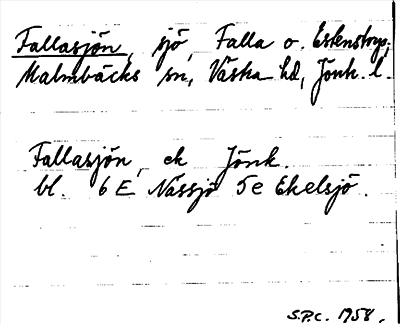 Fallasjön, sjö, Falla o. Eskenstorp,
Malmbäcks sn, Västra hd, Jönk. l.
Fallasjön, ek Jönk.
bl. 6 E Nässjö 5e Ekelsjö.
S.P.C. 1958.